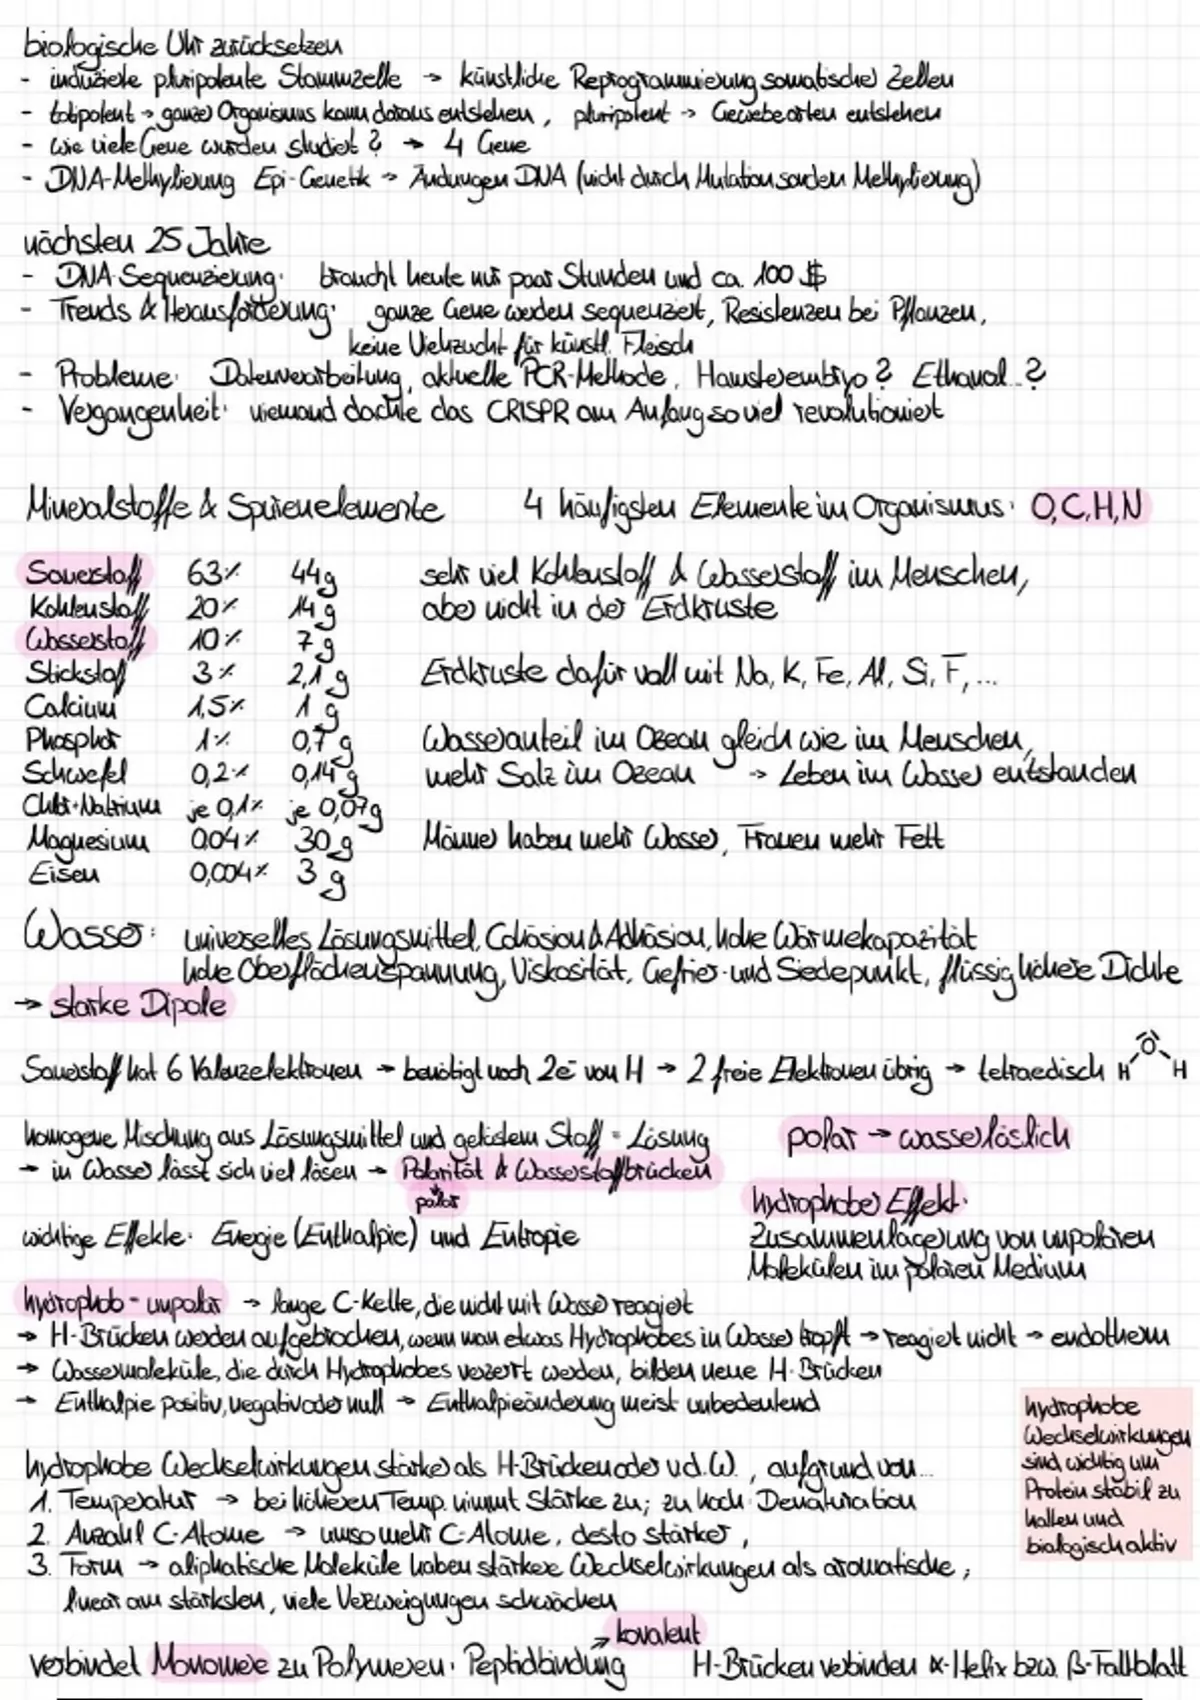 biologische Uhr zurücksetzen
- induzierte pluripotente Stammzelle → künstliche Reprogrammierung somatischer Zellen
- totipotent → ganzer Organismus kann daraus entstehen, pluripotent → Gewebearten entstehen
- wie viele Gene wurden studiert? → 4 Gene
- DNA-Methylierung Epi-Genetik → Ändungen DNA (nicht durch Mutation sondern Methylierung)
nächsten 25 Jahre
- DNA-Sequenzierung: braucht heute nur paar Stunden und ca. 100 $
- Trends & Herausforderung: ganze Gene werden sequenziert, Resistenzen bei Pflanzen,
keine Viehzucht für künstl. Fleisch
- Probleme: Datenverarbeitung, aktuelle PCR-Methode, Hamsterembryo? Ethanol..?
- Vergangenheit: niemand dachte das CRISPR am Anfang so viel revolutioniert
Mineralstoffe & Spurenelemente 4 häufigsten Elemente im Organismus: O,C,H,N
Sauerstoff 63% 44g sehr viel Kohlenstoff & Wasserstoff im Menschen,
Kohlenstoff 20% 14g aber nicht in der Erdkruste
Wasserstoff 10% 7g
Stickstoff 3% 2,1g Erdkruste dafür voll mit Na, K, Fe, Al, Si, F,...
Calcium 1,5% 1g
Phosphor 1% 0,7g Wasseranteil im Ozean gleich wie im Menschen,
Schwefel 0,2% 0,14g mehr Salz im Ozean → Leben im Wasser entstanden
Chlor+Natrium je 0,1% je 0,07g
Magnesium 0,04% 30g Männer haben mehr Wasser, Frauen mehr Fett
Eisen 0,004% 3g
Wasser: universelles Lösungsmittel, Cohäsion & Adhäsion, hohe Wärmekapazität
hohe Oberflächenspannung, Viskosität, Gefrier- und Siedepunkt, flüssig höhere Dichte
→ starke Dipole
Sauerstoff hat 6 Valenzelektronen → benötigt noch 2e⁻ von H → 2 freie Elektronen übrig → tetraedisch H O H
homogene Mischung aus Lösungsmittel und gelöstem Stoff = Lösung polar → wasserlöslich
→ in Wasser lässt sich viel lösen → Polarität & Wasserstoffbrücken
polar
hydrophober Effekt:
wichtige Effekte: Energie (Enthalpie) und Entropie Zusammenlagerung von unpolaren
Molekülen im polaren Medium
hydrophob = unpolar → lange C-Kette, die nicht mit Wasser reagiert
→ H-Brücken werden aufgebrochen, wenn man etwas Hydrophobes in Wasser tropft → reagiert nicht → endotherm
→ Wassermoleküle, die durch Hydrophobes verzerrt werden, bilden neue H-Brücken
→ Enthalpie positiv, negativ oder null → Enthalpieänderung meist unbedeutend
hydrophobe
Wechselwirkungen
sind wichtig um
Protein stabil zu
halten und
biologisch aktiv
hydrophobe Wechselwirkungen stärker als H-Brücken oder v.d.W., aufgrund von...
1. Temperatur → bei höheren Temp. nimmt Stärke zu; zu hoch: Denaturation
2. Anzahl C-Atome → umso mehr C-Atome, desto stärker,
3. Form → aliphatische Moleküle haben stärkere Wechselwirkungen als aromatische;
linear am stärksten, viele Verzweigungen schwächen
→ kovalent
verbindet Monomere zu Polymeren: Peptidbindung H-Brücken verbinden α-Helix bzw. β-Faltblatt